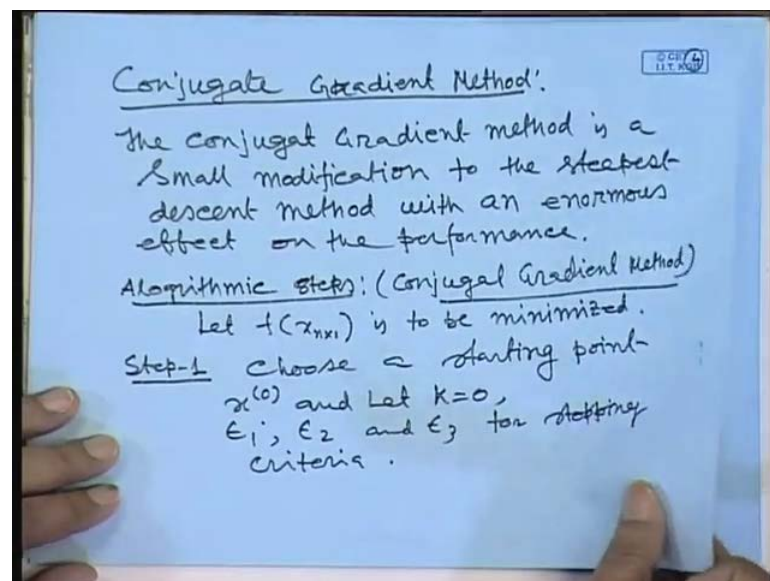 Conjugate Gradient Method:
© CET
I.I.T. KGP
The conjugat Gradient method is a
small modification to the steepest
descent method with an enormous
effect on the performance.
Alogrithmic steps: (Conjugal Gradient Method)
Let f(x_{n×1}) is to be minimized.
Step-1 Choose a starting point
x^{(0)} and Let K=0,
ϵ_1, ϵ_2 and ϵ_3 for stopping
criteria.